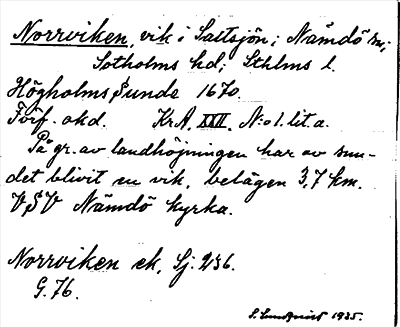 Norrviken, vik i Saltsjön; Nämdö sn;
Sotholms hd; Sthlms l.
Högholms Sunde 1670.
Förf. okd. KrA. XXII. N:o 1. lit. a.
På gr. av landhöjningen har av sun-
det blivit en vik, belägen 3,7 km.
VSV Nämdö kyrka.
Norrviken ek, Sj. 236.
G. 76.
S. Lundqvist 1935.